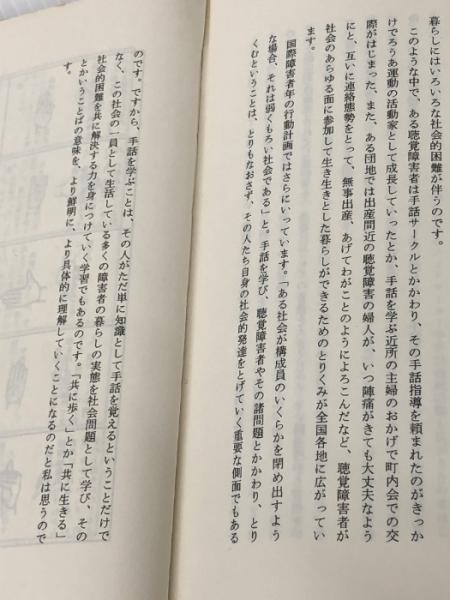 暮らしにはいろいろな社会的困難が伴うのです。
このような中で、ある聴覚障害者は手話サークルとかかわり、その手話指導を頼まれたのがきっか
けでろうあ運動の活動家として成長していったとか、手話を学ぶ近所の主婦のおかげで町内会での交
際がはじまった、また、ある団地では出産間近の聴覚障害の婦人が、いつ陣痛がきても大丈夫なよう
にと、互いに連絡態勢をとって、無事出産、あげてわがことのようによろこんだなど、聴覚障害者が
社会のあらゆる面に参加して生き生きとした暮らしができるためのとりくみが全国各地に広がってい
ます。
国際障害者年の行動計画ではさらにいっています。「ある社会が構成員のいくらかを閉め出すよう
な場合、それは弱くもろい社会である」と。手話を学び、聴覚障害者やその諸問題とかかわり、とり
くむということは、とりもなおさず、その人たち自身の社会的発達をとげていく重要な側面でもある
のです。ですから、手話を学ぶことは、その人がただ単に知識として手話を覚えるということだけで
なく、この社会の一員として生活している多くの障害者の暮らしの実態を社会問題として学び、その
社会的困難を共に解決する力を身につけていく学習でもあるのです。「共に歩く」とか「共に生きる」
とかいうことばの意味を、より鮮明に、より具体的に理解していくことになるのだと私は思うので
す。